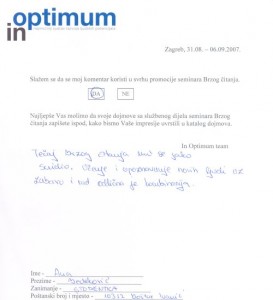 optimum
in
Zagreb, 31.08. – 06.09.2007.
Slažem se da se moj komentar koristi u svrhu promocije seminara Brzog čitanja.
DA NE
Najljepše Vas molimo da svoje dojmove sa službenog dijela seminara Brzog
čitanja zapišete ispod, kako bismo Vaše impresije uvrstili u katalog dojmova.
In Optimum team
Tečaj brzog čitanja mi se jako
svidio. Učenje i upoznavanje novih ljudi uz
zabavu i rad odlična je kombinacija.
Ime - Ana
Prezime -
Zanimanje - STUDENTICA
Poštanski broj i mjesto - 10312